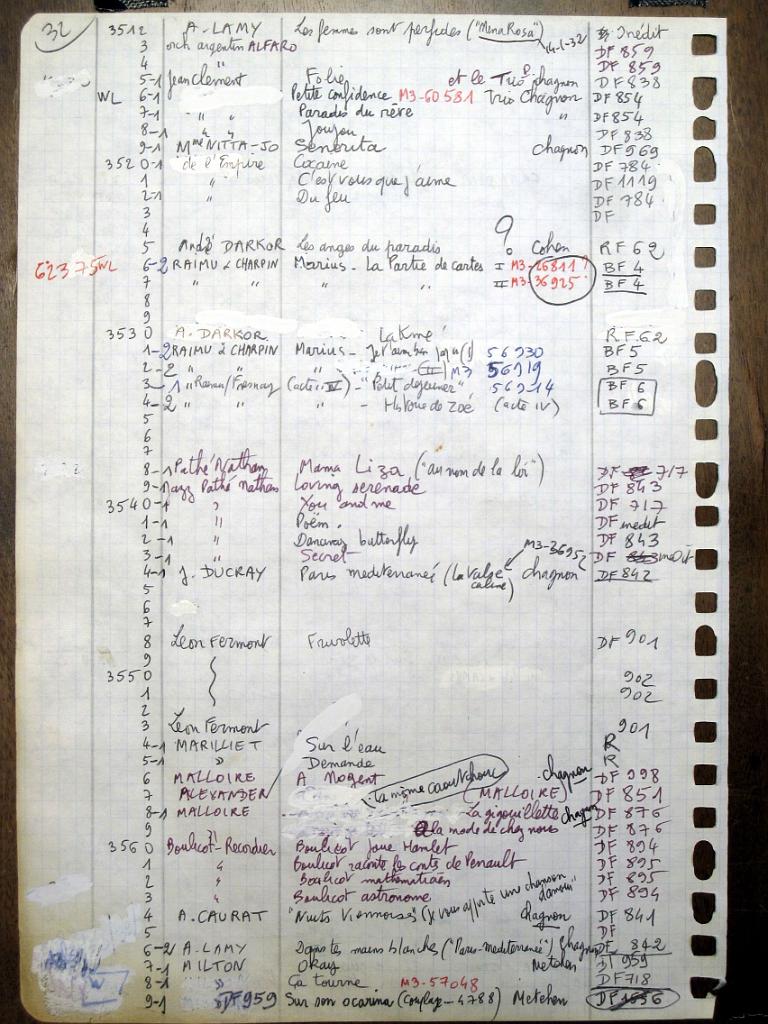 32
3512 A. LAMY Les femmes sont perfides ("Mena Rosa") 14-1-32 Inédit
3 orch argentin ALFARO DF 859
4 DF 859
5-1 Jean Clement Folie et le Trio chagnon DF 838
WL 6-1 " Petite confidence M3-60581 Trio Chagnon DF 854
7-1 " " Paradis du rêve " DF 854
8-1 " " Joujou DF 838
9-1 Mme NITTA-JO Senorita chagnon DF 969
3520-1 de l'Empire Cocaine DF 784
1 " C'est vous que j'aime DF 1119
2-1 " Du feu DF 784
3 DF
4
5 André DARKOR Les anges du paradis ? Cohen RF 62
62375 WL 6-2 RAIMU & CHARPIN Marius - La Partie de cartes I M3-26811? BF 4
7 " " " II M3-36925 BF 4
8
9
3530 A. DARKOR Lakmé RF 62
1-2 RAIMU & CHARPIN Marius - 56930 BF 5
2-2 " " " M3 56919 BF 5
3-1 " (acte IV) - "Petit dejeuner" 56914 BF 6
4-2 " " " - Histoire de Zoé (acte IV) BF 6
5
6
7
8-1 Pathé Nathan Mama Liza ("au nom de la loi") DF 717
9-1 Jazz Pathé Nathan Loving serenade DF 843
3540-1 " You and me DF 717
1-1 " Poëm. DF inedit
2-1 " butterfly DF 843
3-1 " Secret M3-36952 DF inedit
4-1 J. DUCRAY Paris mediterranée (La Valse caline) chagnon DF 842
5
6
7
8 Leon Fermont Frivolette DF 901
9
3550 902
1 902
2
3 Leon Fermont 901
4-1 MARILLIET Sur l'eau R
5-1 " Demande R
6 MALLOIRE A Nogent chagnon DF 998
7 ALEXANDER La môme caoutchouc (MALLOIRE) DF 851
8-1 MALLOIRE La gigouillette chagnon DF 876
9 " a la mode de chez nous DF 876
3560 Boulicot-Recordier Boulicot joue Hamlet DF 894
1 " Boulicot raconte les conts de Perrault DF 895
2 " Boulicot mathématicien DF 895
3 " Boulicot astronome DF 894
4 A. CAURAT "Nuits Viennoises" (je vous apporte une chanson d'amour) chagnon DF 841
5 DF
6-2 A. LAMY Dans tes mains blanches ("Paris-mediterranée") Chagnon DF 842
7-1 MILTON Okay Metehen DF 959
8-1 " Ça tourne M3-57048 DF 718
9-1 " DF 959 Sur son ocarina (Couplage - 4788) Metehen DF 1656